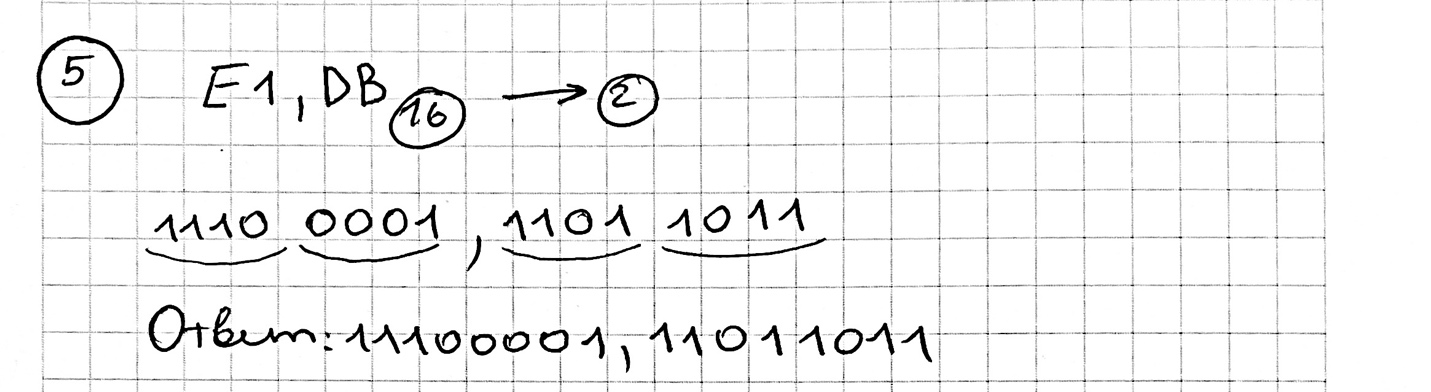 5 E1,DB 16 → 2
1110 0001 , 1101 1011
Ответ: 11100001, 11011011